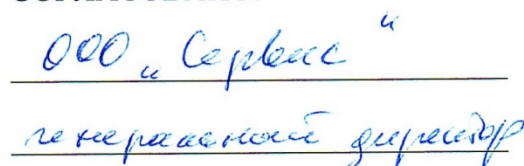 ООО „Сервис“
генеральный директор